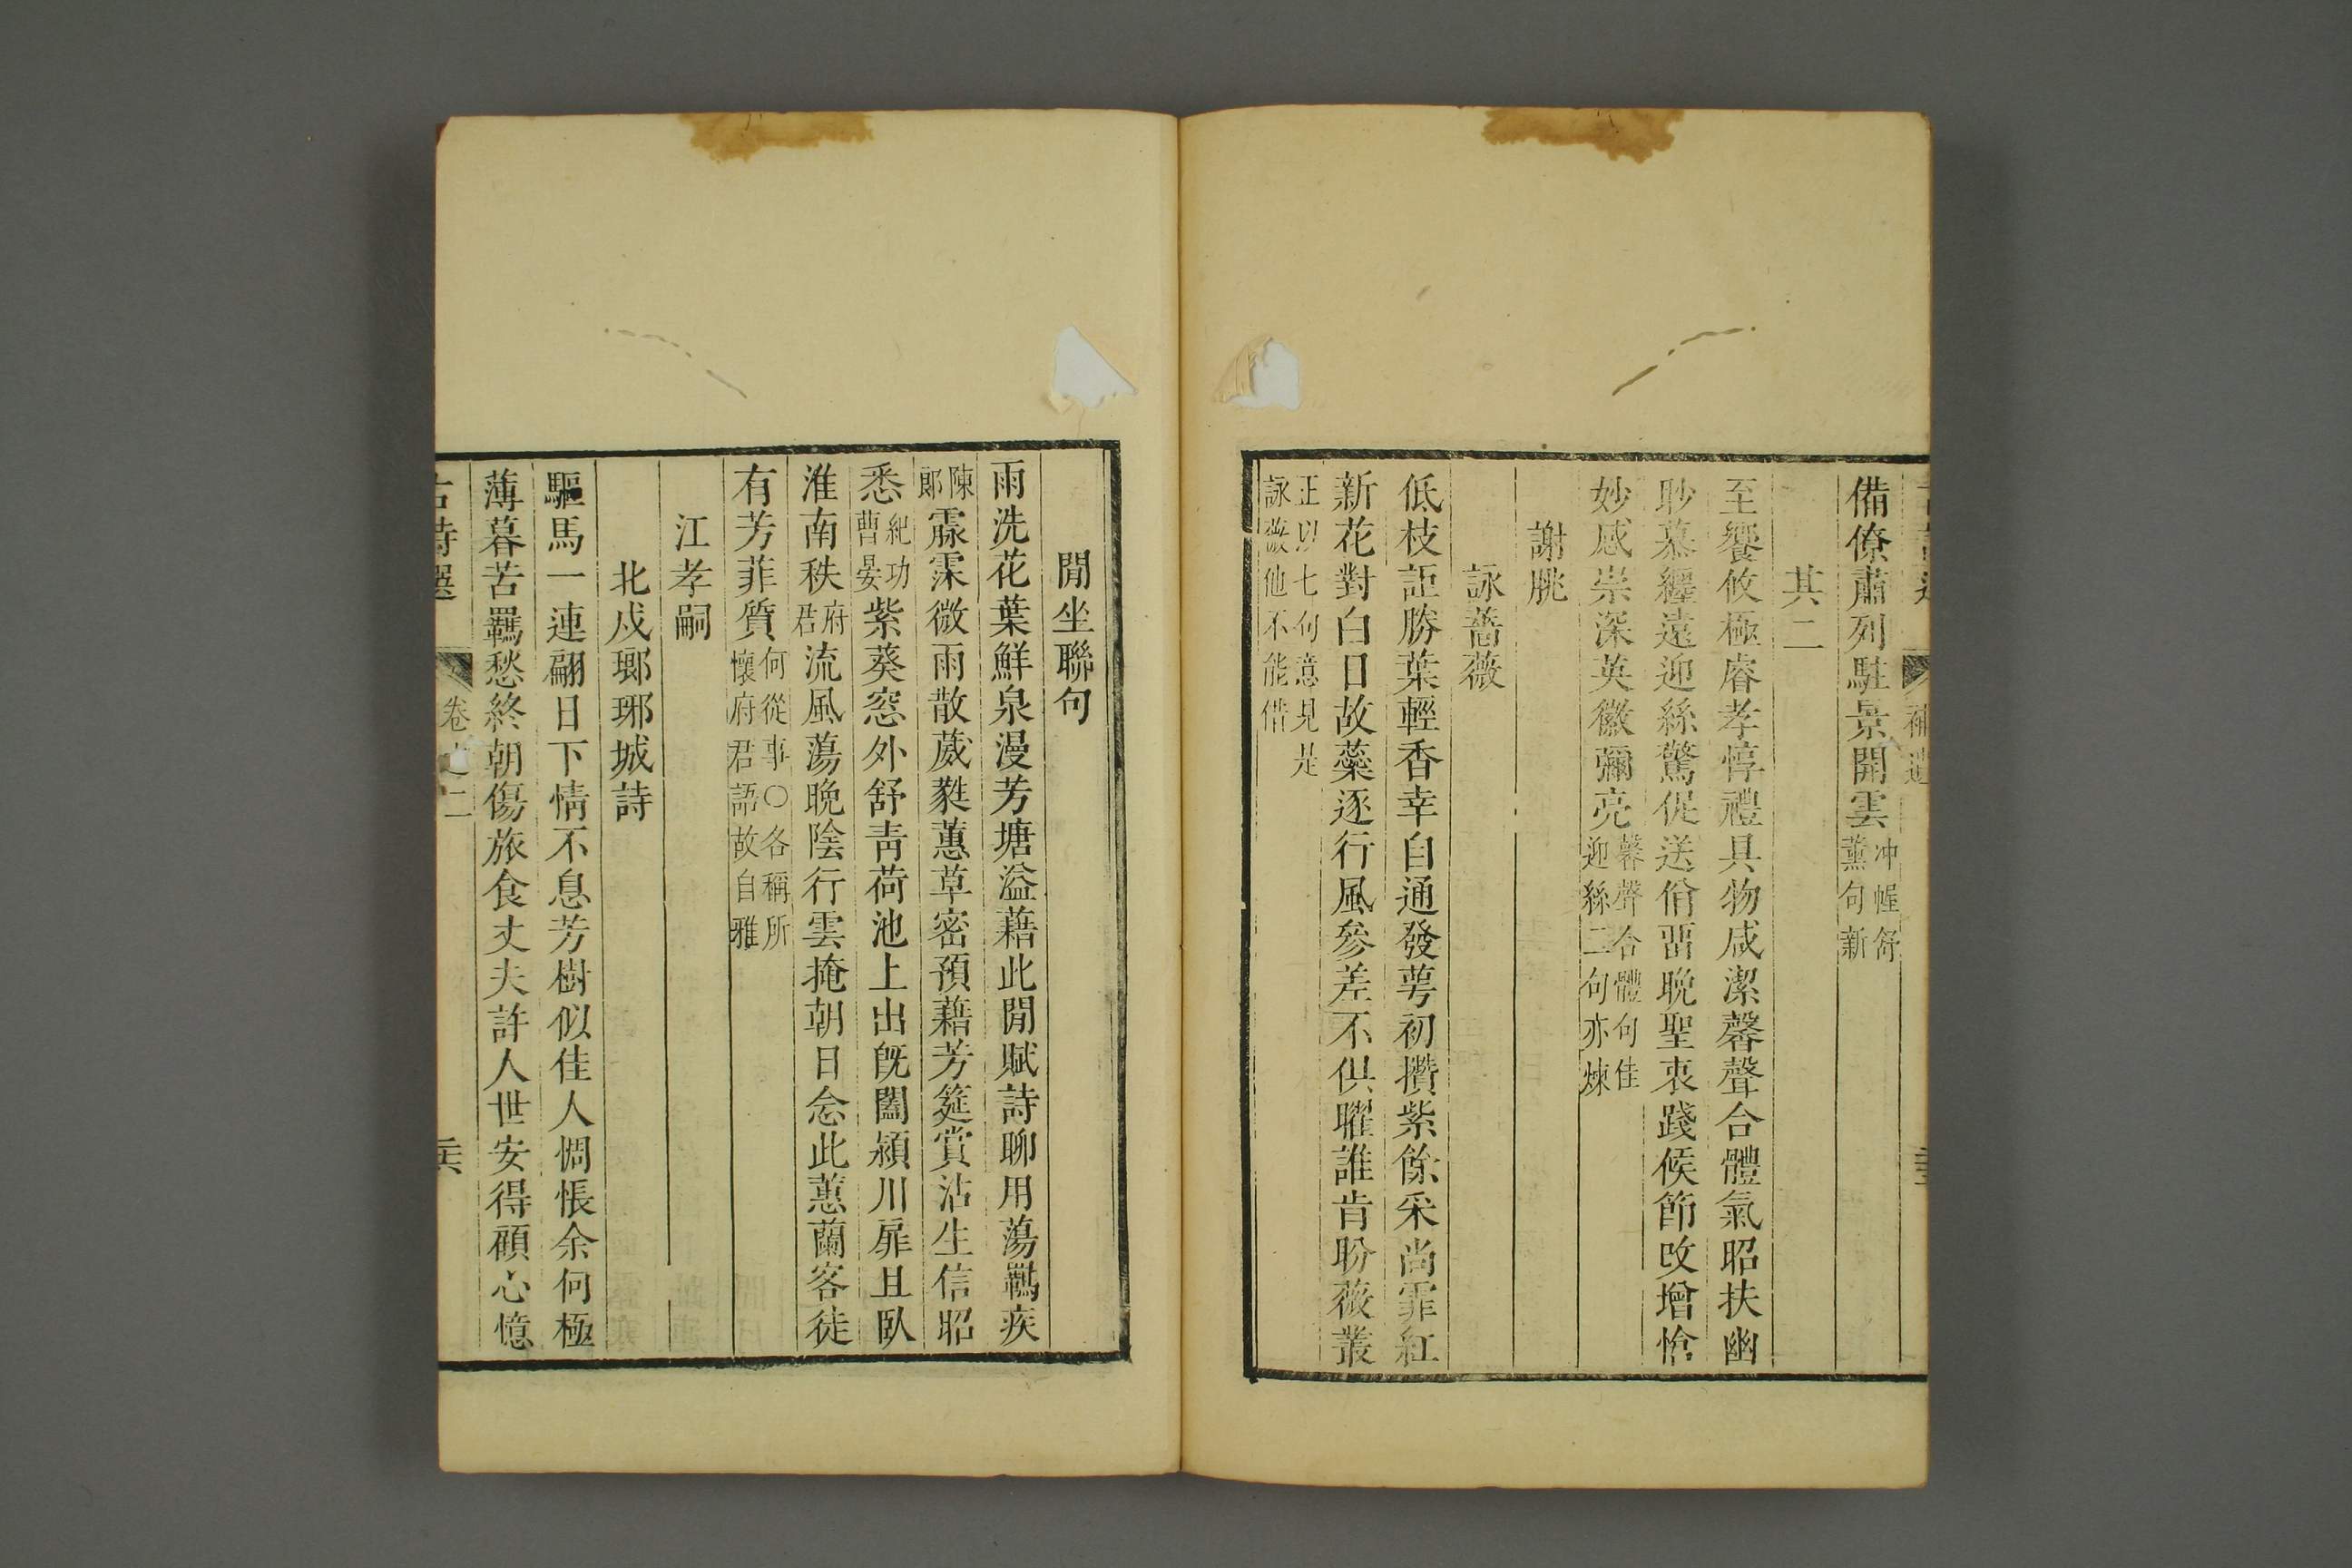 備僚肅列駐景開雲冲幄舒薰句新
其二
至饗攸極睿孝惇禮具物咸潔馨聲合體氣昭扶幽
眇慕纏遠迎絲驚促送佾畱晩聖衷踐候節改增愴
妙感崇深英徽彌亮馨聲合體句佳迎絲二句亦煉
謝朓
詠薔薇
低枝詎勝葉輕香幸自通發萼初攢紫餘采尚霏紅
新花對白日故蘂逐行風參差不俱曜誰肯盼薇叢
正以七句意見是詠薇他不能借
閒坐聯句
雨洗花葉鮮泉漫芳塘溢藉此閒賦詩聊用蕩羈疾
陳郎霢霂微雨散葳蕤蕙草密預藉芳筵賞沾生信昭
悉紀功曹晏紫葵窓外舒青荷池上出旣闔潁川扉且臥
淮南秩府君流風蕩晩陰行雲掩朝日念此蕙蘭客徒
有芳菲質何從事○各稱所懷府君語故自雅
江孝嗣
北戍瑯琊城詩
驅馬一連翩日下情不息芳樹似佳人惆悵余何極
薄暮苦羈愁終朝傷旅食丈夫許人世安得顧心憶
古詩選 卷之二 二六